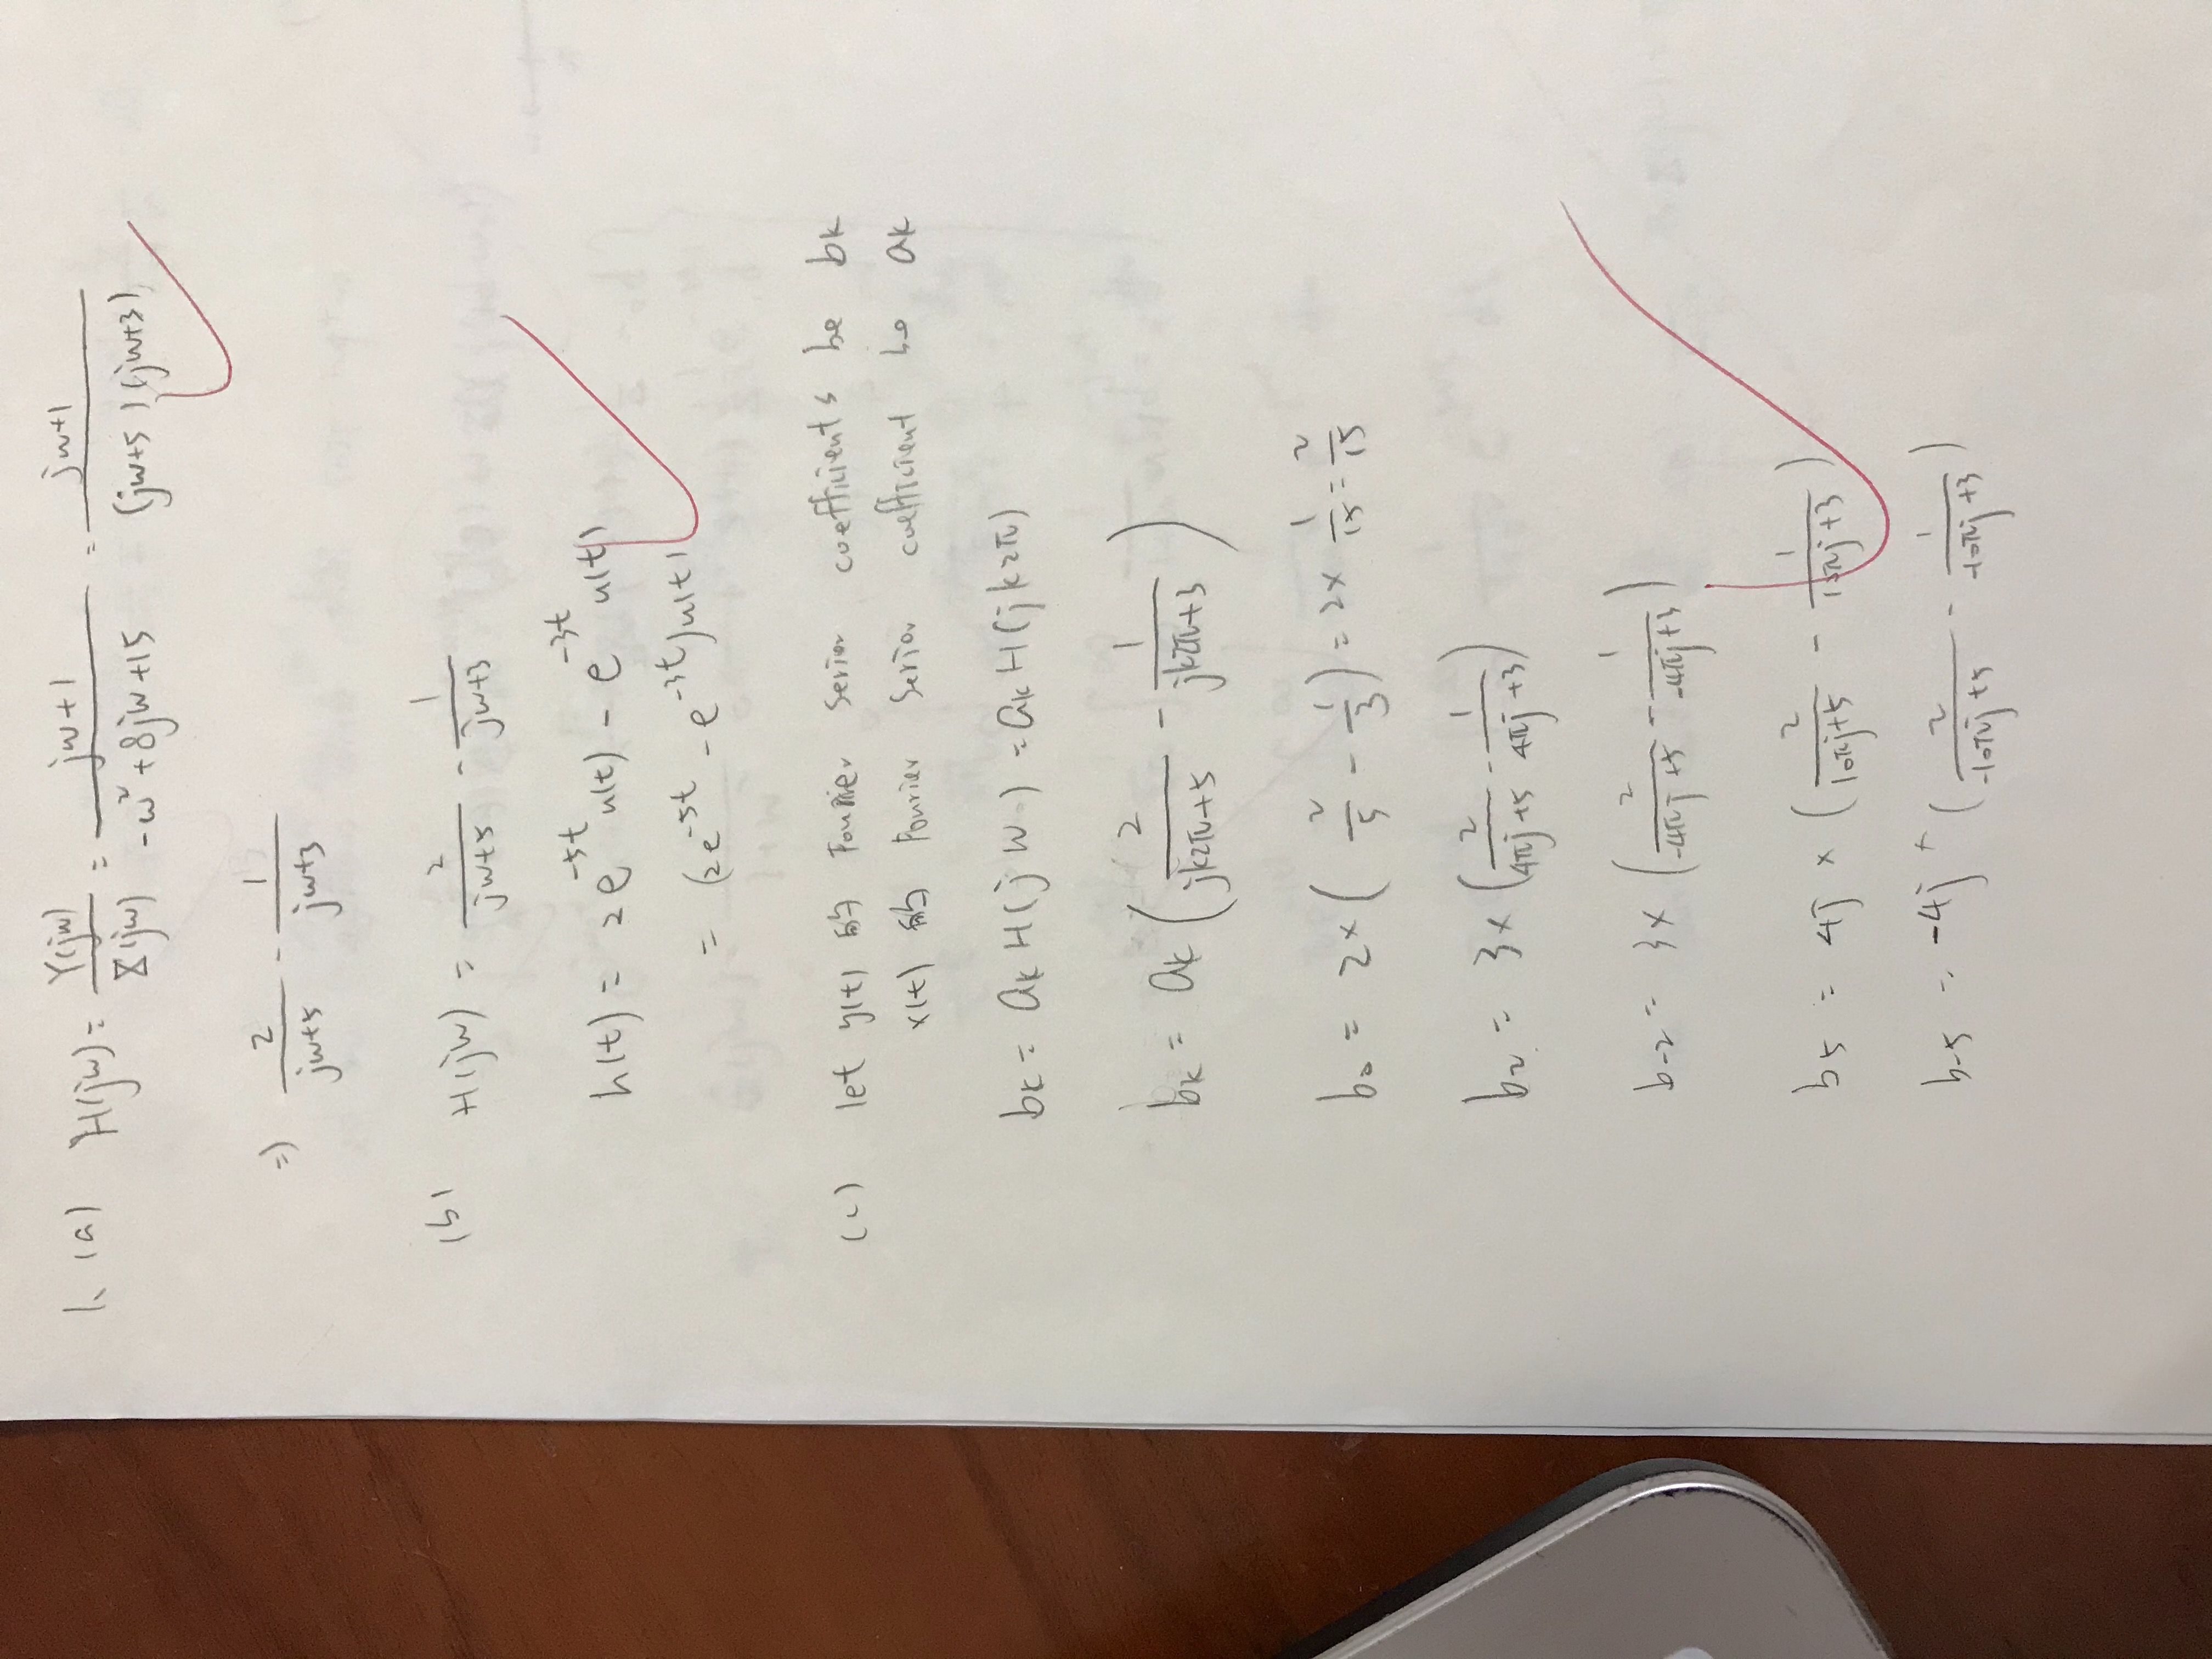 1. (a) H(jw) = Y(jw)/X(jw) = (jw+1)/(-w²+8jw+15) = (jw+1)/((jw+5)(jw+3))
=) 2/(jw+5) - 1/(jw+3)
(b) H(jw) = 2/(jw+5) - 1/(jw+3)
h(t) = 2e^{-5t}u(t) - e^{-3t}u(t)
= (2e^{-5t} - e^{-3t})u(t)
(c) let y(t) 的 Fourier Serier coefficients be bk
x(t) 的 Fourier Serier coefficient be ak
bk = ak H(jw) = ak H(jk2π)
bk = ak (2/(jk2π+5) - 1/(jk2π+3))
b0 = 2×(2/5 - 1/3) = 2× 1/15 = 2/15
b2 = 3×(2/(4πj+5) - 1/(4πj+3))
b-2 = 3×(2/(-4πj+5) - 1/(-4πj+3))
b5 = 4j × (2/(10πj+5) - 1/(10πj+3))
b-5 = -4j × (2/(-10πj+5) - 1/(-10πj+3))